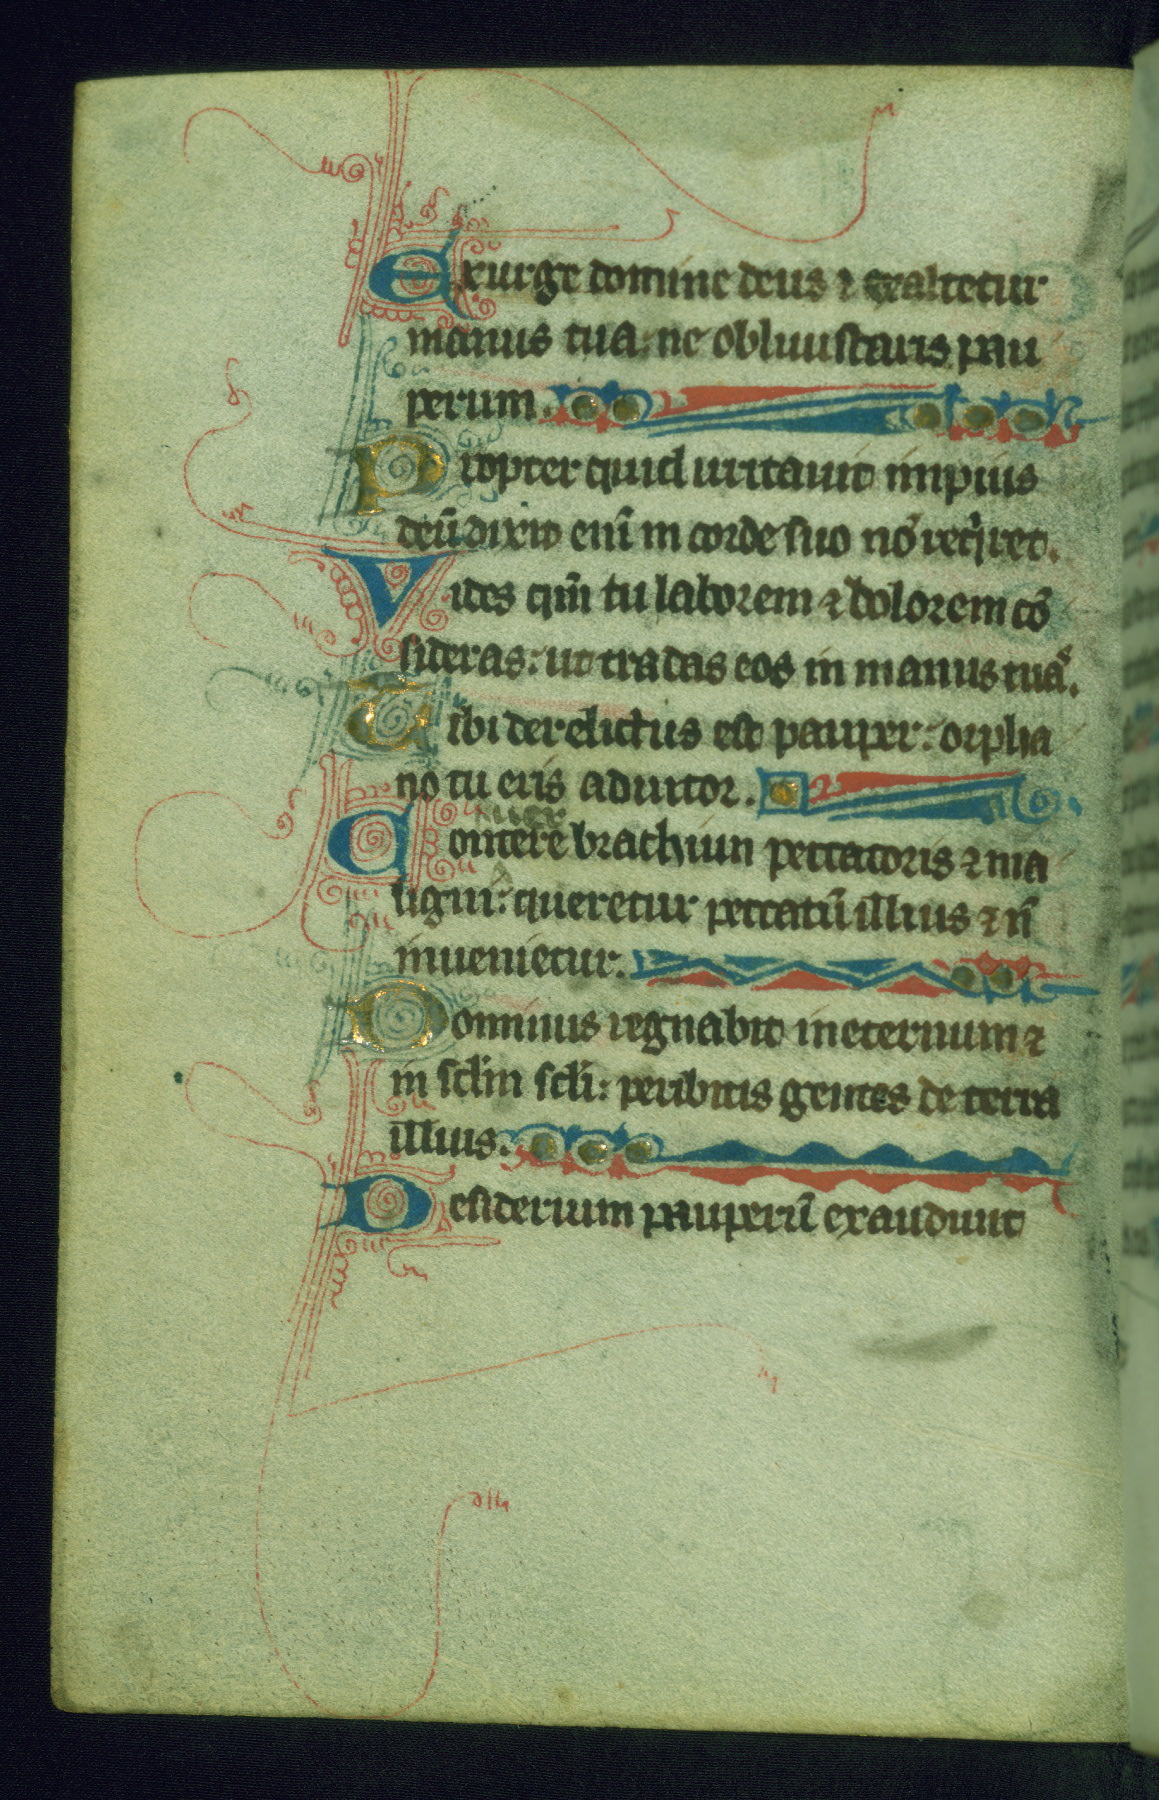 Exurge domine deus ⁊ exaltetur
manus tua: ne obliuiscaris pau
perum.
Propter quid irritauit impius
deū dixit enī in corde suo nō reqͥret.
Vides qm̄ tu laborem ⁊ dolorem cō
sideras: ut tradas eos in manus tuaˢ.
Tibi derelictus est pauper: orpha
no tu eris adiutor.
Contere brachium peccatoris ⁊ ma
ligni: queretur peccatū illius ⁊ n̄
inuenietur.
Dominus regnabit in eternum ⁊
in sclm̄ scli: peribitis gentes de terra
illius.
Desiderium pauperū exaudiuit